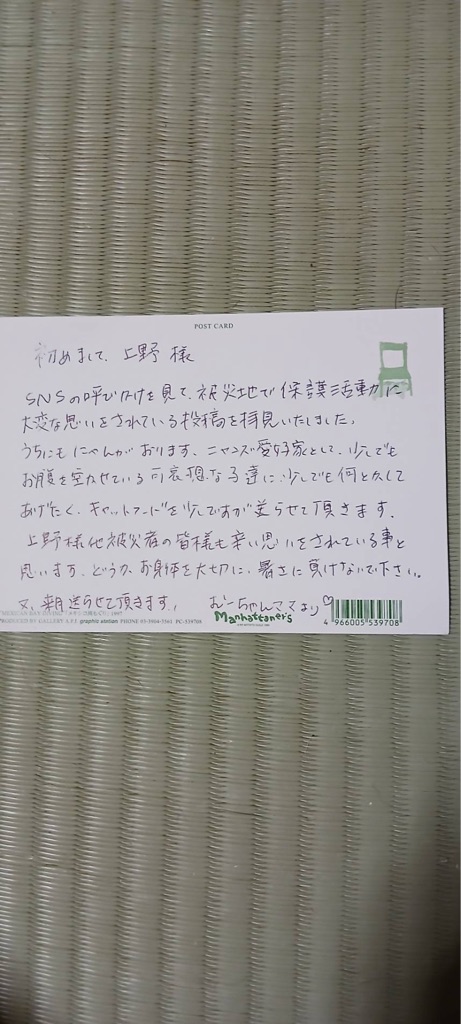 POST CARD
初めまして、上野様
SNSの呼びかけを見て、被災地で保護活動に
大変な思いをされている投稿を拝見いたしました。
うちにもにゃんがおります、ニャンズ愛好家として、少しでも
お腹を空かせている可哀想な子達に、少しでも何とかして
あげたく、キャットフードを少しですが送らせて頂きます。
上野様他被災者の皆様も辛い思いをされている事と
思います。どうかお身体を大切に、暑さに負けないで下さい。
又、来月送らせて頂きます。 むーちゃんママより♡
Manhattaner's
PRODUCED BY GALLERY S.P.F graphic station PHONE 03-5904-5561 PC-539708
4 966005 539708